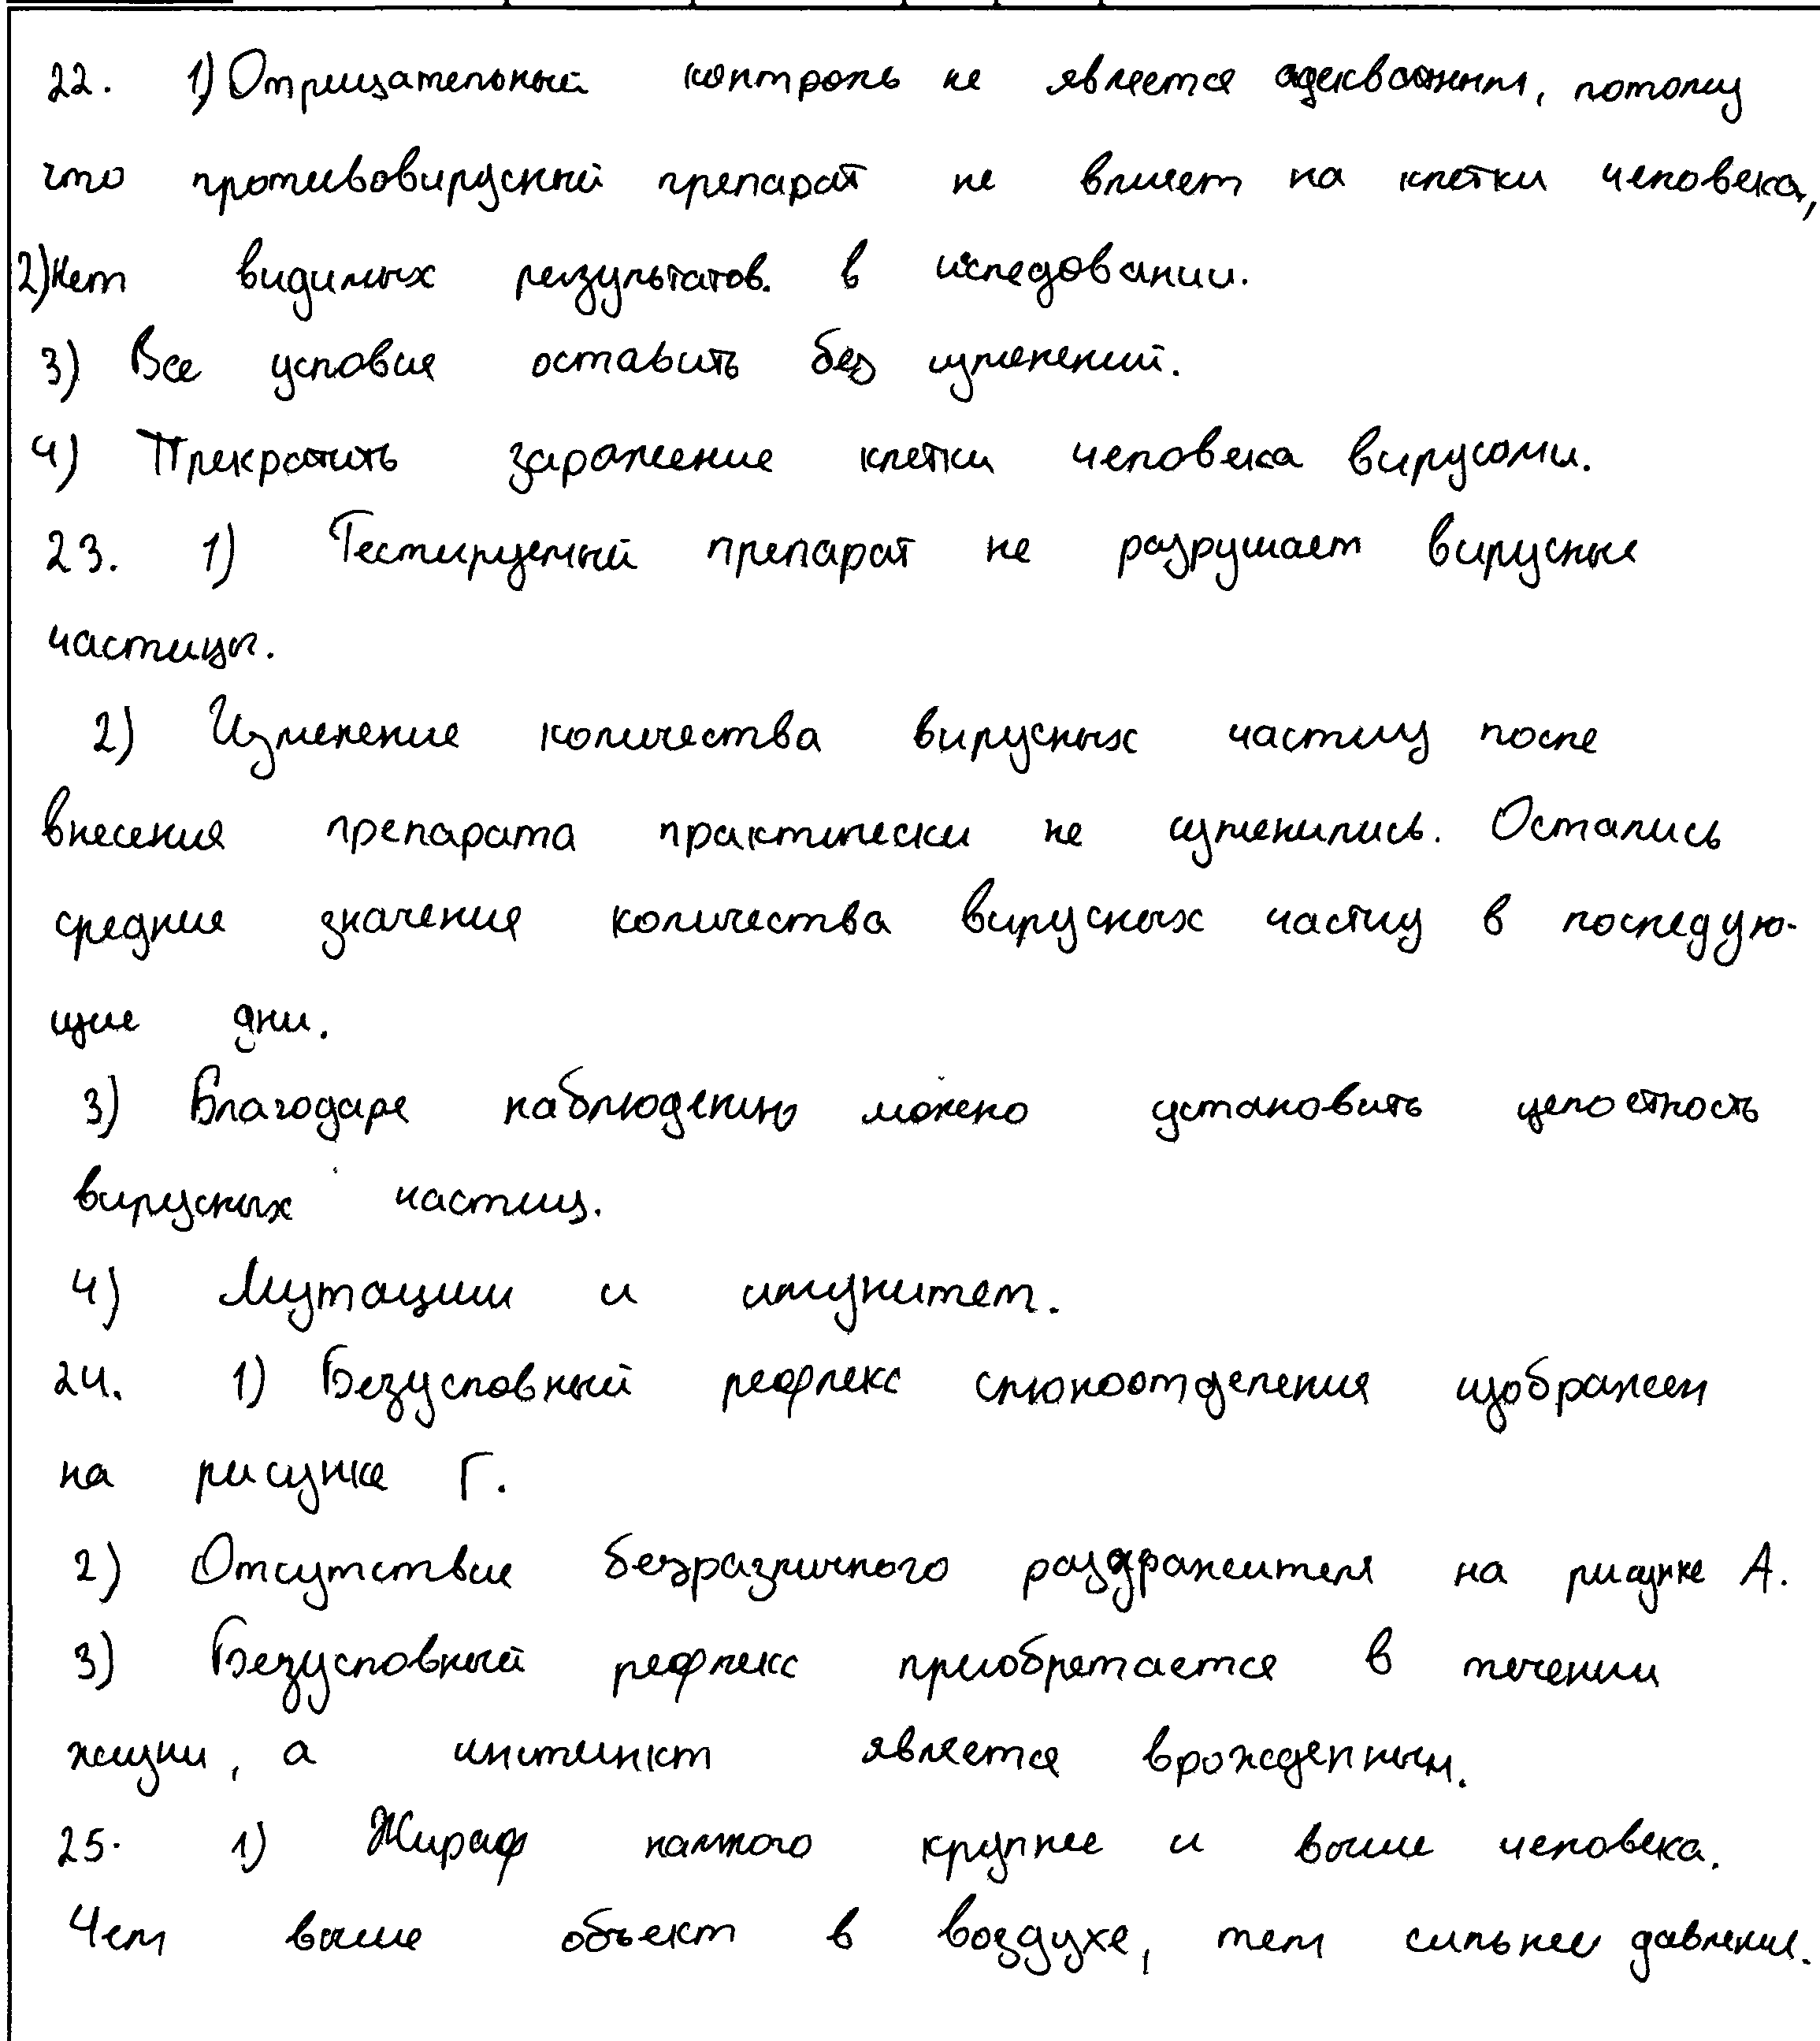 22. 1) Отрицательный контроль не является адекватным, потому
что противовирусный препарат не влияет на клетки человека,
2) Нет видимых результатов. в иследовании.
3) Все условия оставить без изменений.
4) Прекратить заражение клетки человека вирусами.
23. 1) Тестируемый препарат не разрушает вирусные
частицы.
2) Изменение количества вирусных частиц после
внесения препарата практически не изменились. Остались
средние значения количества вирусных частиц в последую-
щие дни.
3) Благодаря наблюдению можно установить целостность
вирусных частиц.
4) Мутации и имунитет.
24. 1) Безусловный рефлекс слюноотделения изображен
на рисунке Г.
2) Отсутствие безразличного раздражителя на рисунке А.
3) Безусловный рефлекс приобретается в течении
жизни, а инстинкт является врожденным.
25. 1) Жираф намного крупнее и выше человека.
Чем выше объект в воздухе, тем сильнее давление.